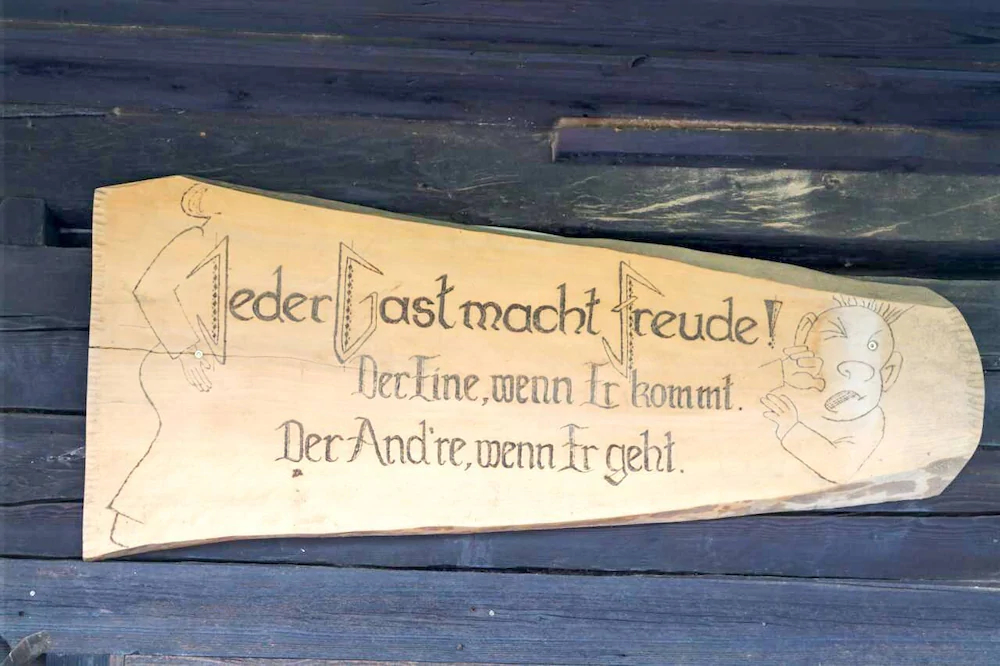 Jeder Gast macht Freude!
Der Eine, wenn Er kommt.
Der And're, wenn Er geht.